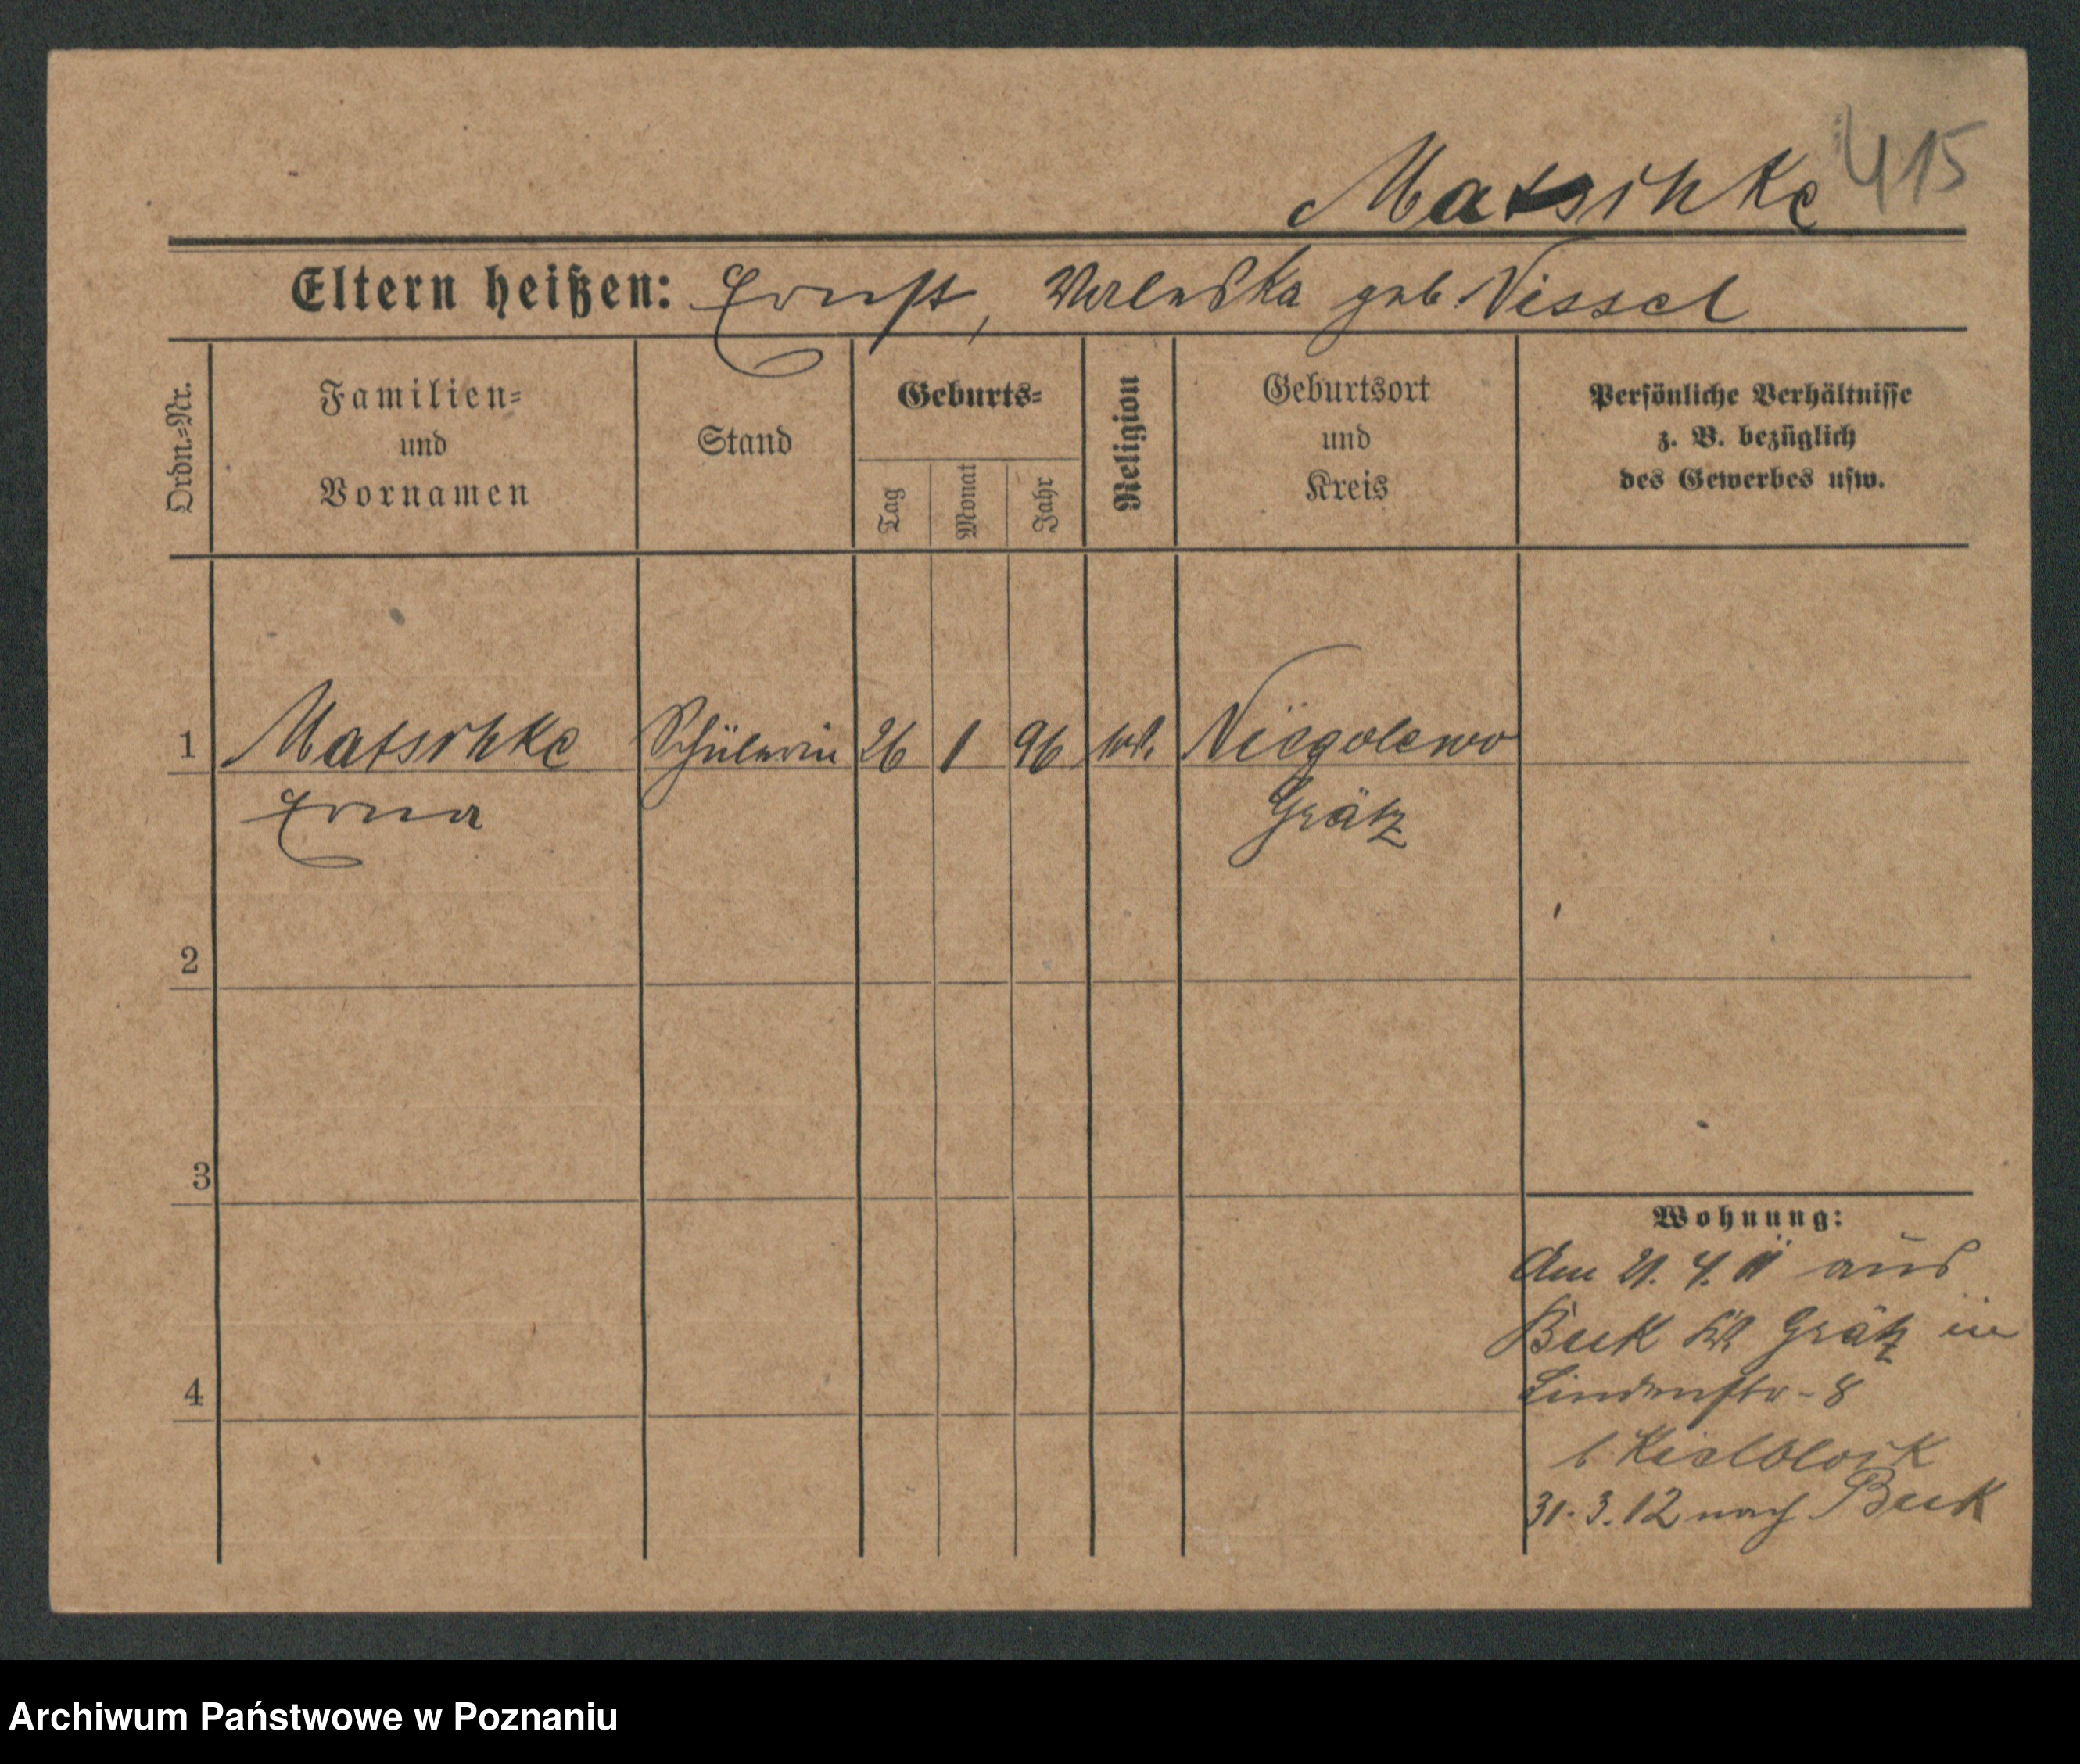 Matschke 415
Eltern heißen: Ernst, Valeska geb. Nissel
Ordn.-Nr.
Familien-
und
Vornamen
Stand
Geburts-
Tag
Monat
Jahr
Religion
Geburtsort
und
Kreis
Persönliche Verhältnisse
z. B. bezüglich
des Gewerbes usw.
1 Matschke Schülerin 26 1 96 Niegolewo
Erna Grätz
2
3
4
Wohnung:
Am 21. 4. 11 aus
Buk Kr. Grätz in
Lindenstr-8
b
31.3.12 nach Buk
Archiwum Państwowe w Poznaniu